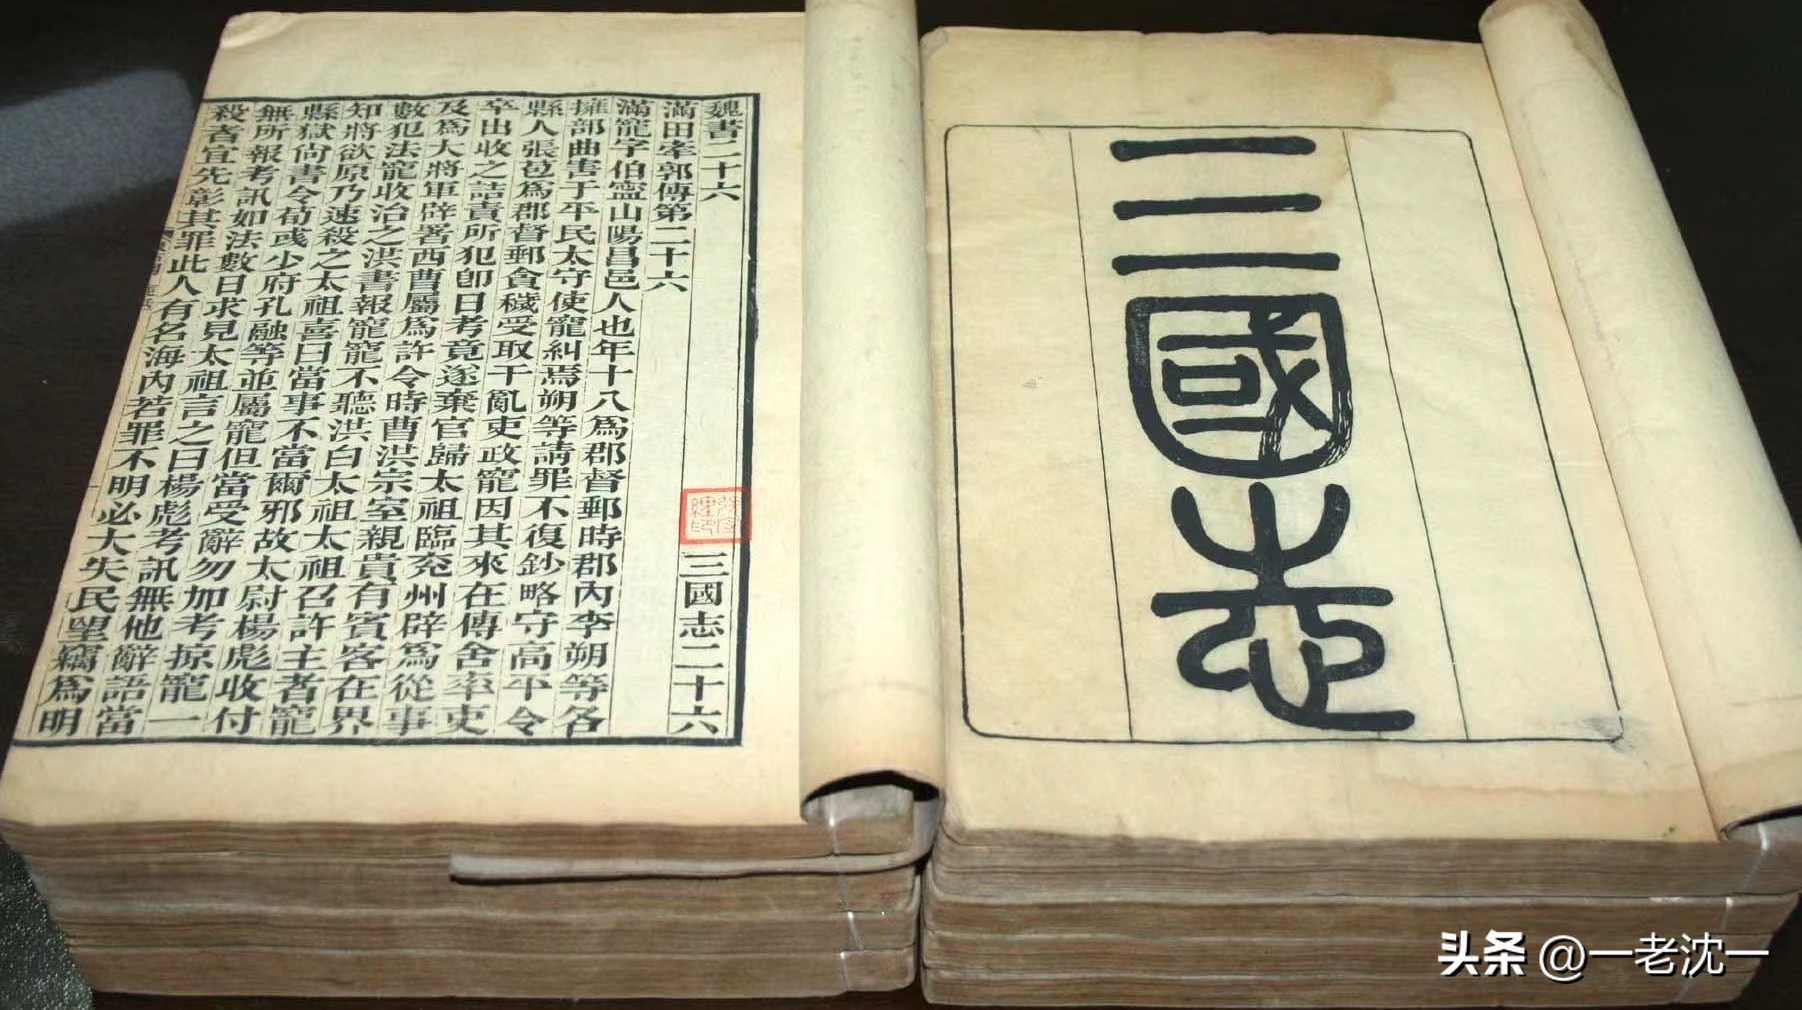 三國志
魏書二十六 三國志二十六
滿田牽郭傳第二十六
滿寵字伯寧山陽昌邑人也年十八爲郡督郵時郡內李朔等各
擁部曲害于平民太守使寵糾焉朔等請罪不復鈔略守高平令
縣人張苞爲郡督郵貪穢受取干亂吏政寵因其來在傳舍率吏
卒出收之詰責所犯卽日考竟遂棄官歸太祖臨兗州辟爲從事
及爲大將軍辟署西曹屬爲許令時曹洪宗室親貴有賓客在界
數犯法寵收治之洪書報寵寵不聽洪白太祖太祖召許主者寵
知將欲原乃速殺之太祖喜曰當事不當爾邪故太尉楊彪收付
縣獄尙書令荀彧少府孔融等並屬寵但當受辭勿加考掠寵一
無所報考訊如法數日求見太祖言之曰楊彪考訊無他辭語當
殺者宜先彰其罪此人有名海內若罪不明必大失民望竊爲明
头条 @一老沈一